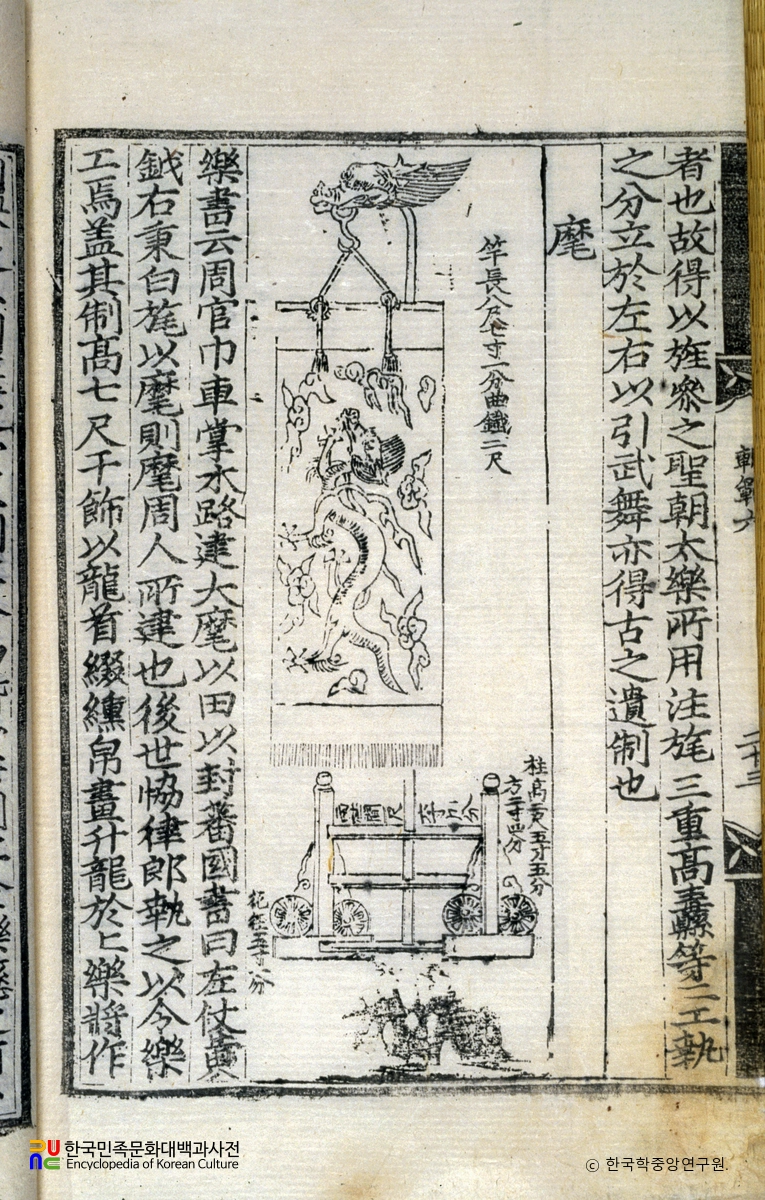 者也故得以旌衆之聖朝太樂所用注旄三重高纛縣等二工執
之分立於左右以引武舞亦得古之遺制也
麾
竿長八尺七寸一分曲鐵二尺
柱高二尺五寸五分
方二寸四分
樂書云周官巾車掌木路建大麾以田以封蕃國書曰左仗黃
鉞右秉白旄以麾則麾周人所建也後世恊律郎執之以令樂
工焉盖其制高七尺干飾以龍首綴纁帛畫升龍於上樂將作
軒範六
二十三
한국민족문화대백과사전
Encyclopedia of Korean Culture
ⓒ 한국학중앙연구원.